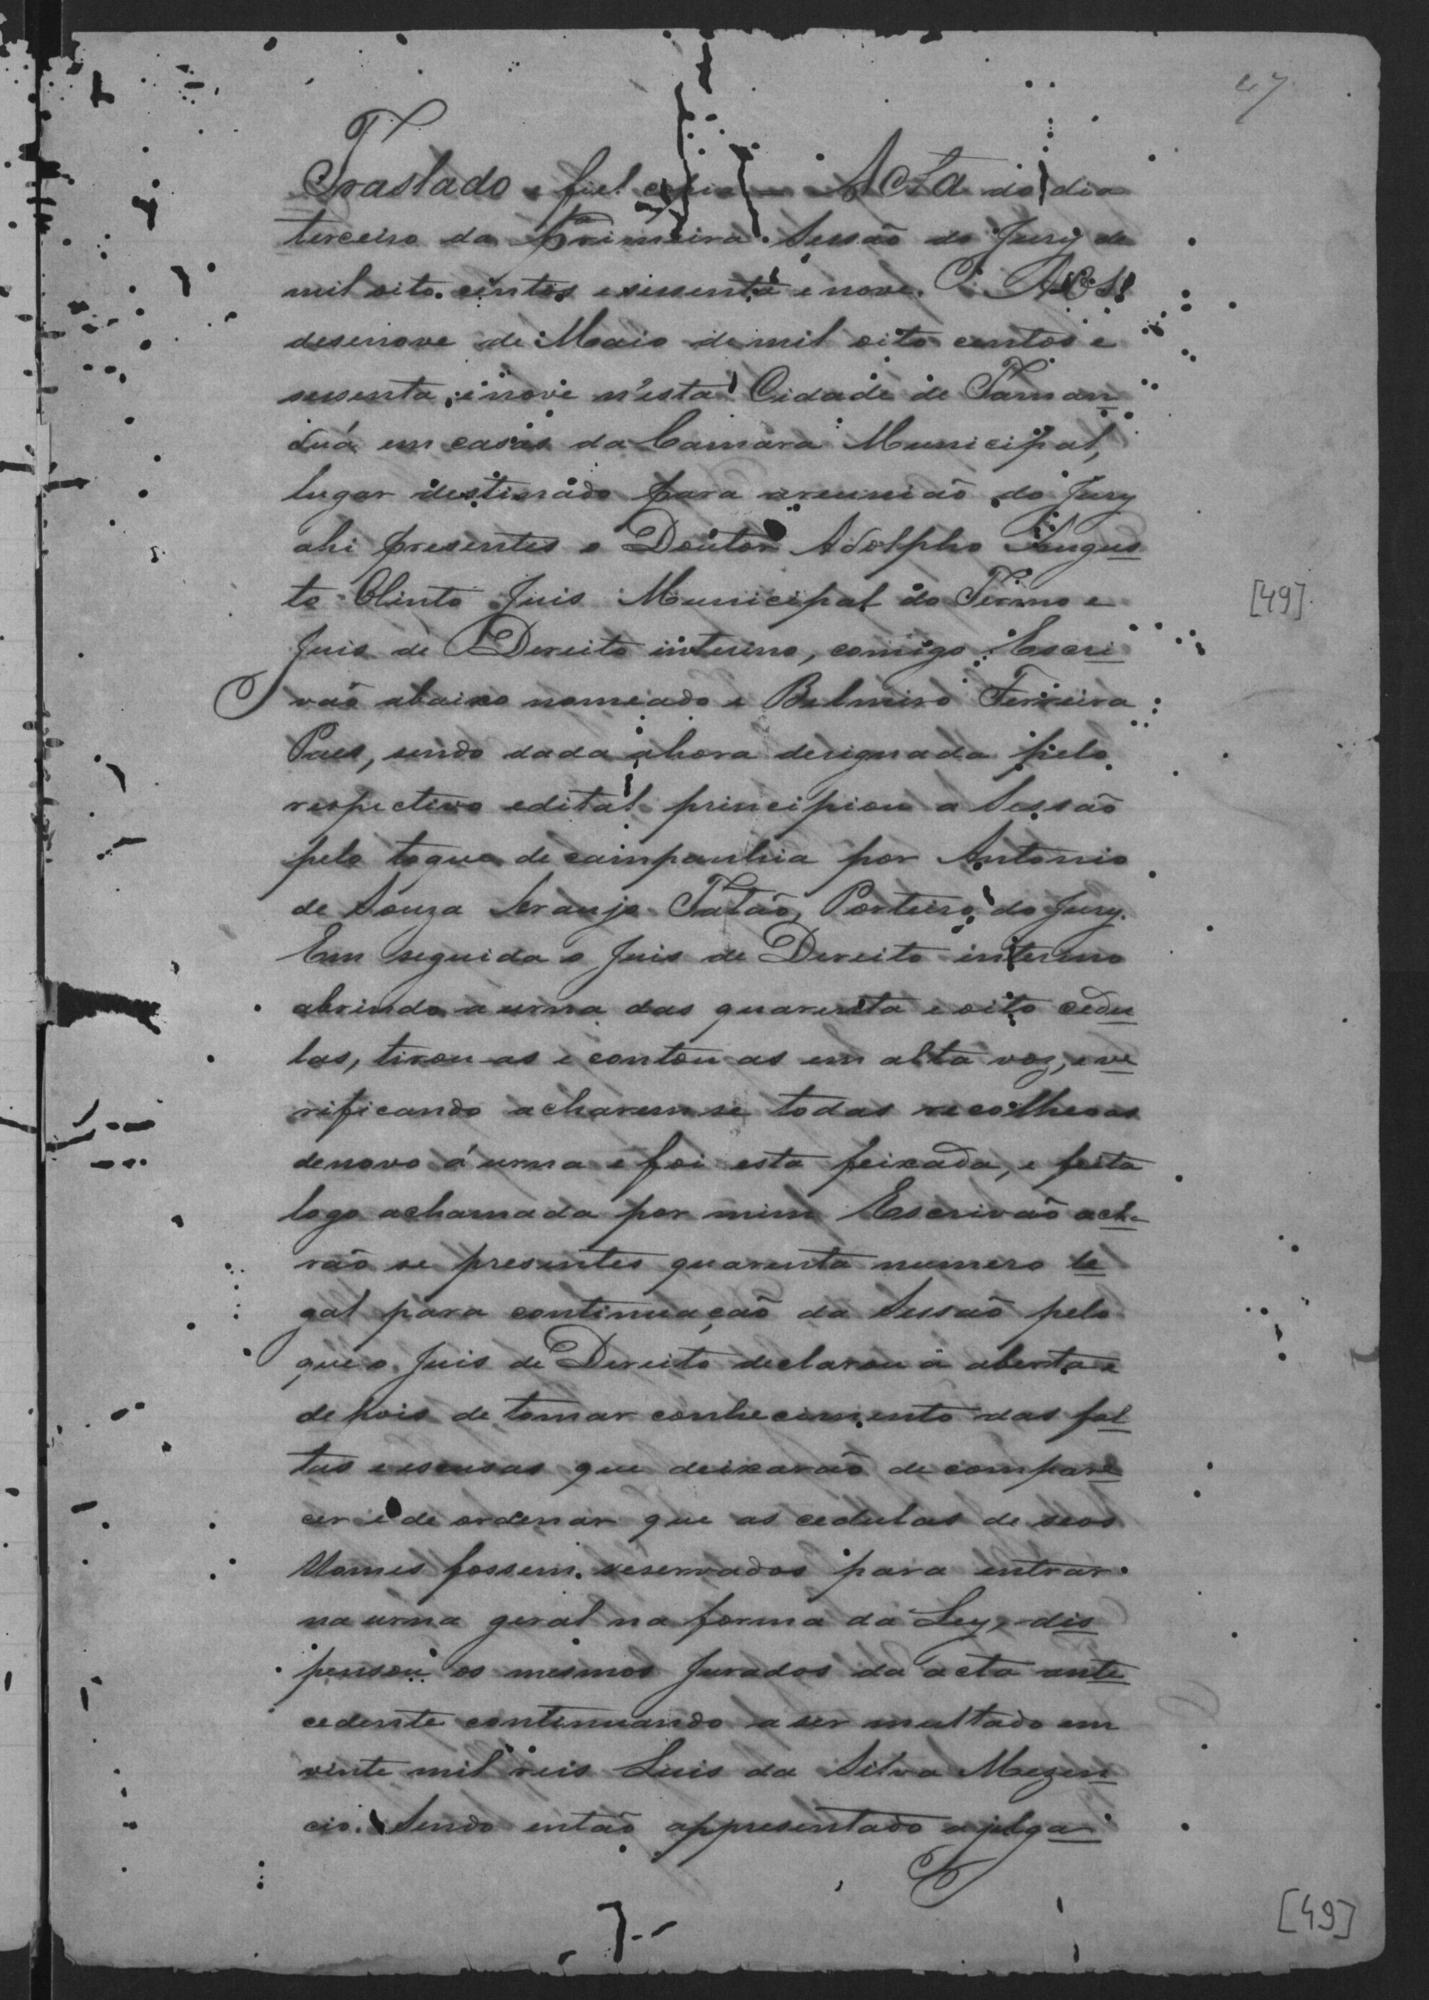 47
Traslado e fiel copia = Acta do dia
terceiro da Primeira Sessão do Jury de
mil oito centos e sessenta e nove. Aos
desenove de Maio de mil oito centos e
sessenta e nove n'esta Cidade de Taman
duá em casas da Camara Municipal,
lugar destinado para areunião do Jury
ahi presentes o Doutor Adolpho Augus
to Olinto Juis Municipal do Termo e
Juis de Dereito interino, comigo Escri
vão abaixo nomeado e Belmiro Ferreira
Paes, sendo dada ahora designada pelo
respectivo edital principiou a Sessão
pelo toque de campanhia por Antonio
de Souza Araujo Tatão, Porteiro do Jury.
Em seguida o Juis de Dereito interino
abrindo a urna das quarenta e oito cedu
las, tirou-as e contou as em alta voz, e ve
rificando acharem se todas recolheo as
denovo á urna e foi esta feixada, e feita
logo achamada por mim Escrivão ach-
rão se presentes quarenta numero le
gal para continuação da Sessão pelo
que o Juis de Direito declarou a aberta e
depois de tomar conhecimento das fal
tas e escusas que deixarão de compare
cer e de ordenar que as cedulas de seos
Nomes fossem reservados para entrar
na urna geral na forma da Ley, dis
pensou os mesmos Jurados da acta ante
cedente continuando a ser multado em
vinte mil reis Luis da Silva Mezen
cio. Sendo então appresentado a julga
[49]
[49]